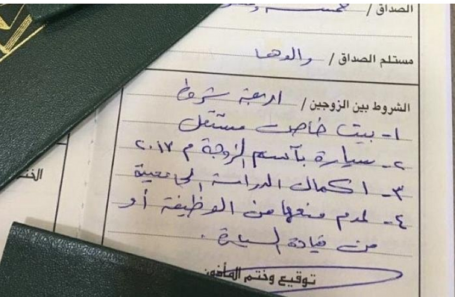 الصداق / خمسة
مستلم الصداق / والدها
الشروط بين الزوجين / اربعة شروط
١- بيت خاص مستقل
٢- سيارة بآسم الزوجة م ٢٠١٧
٣- اكمال الدراسة الجامعية
٤- لمدم منعها من الوظيفة أو
من قيادة السيارة.
توقيع وختم المأذون